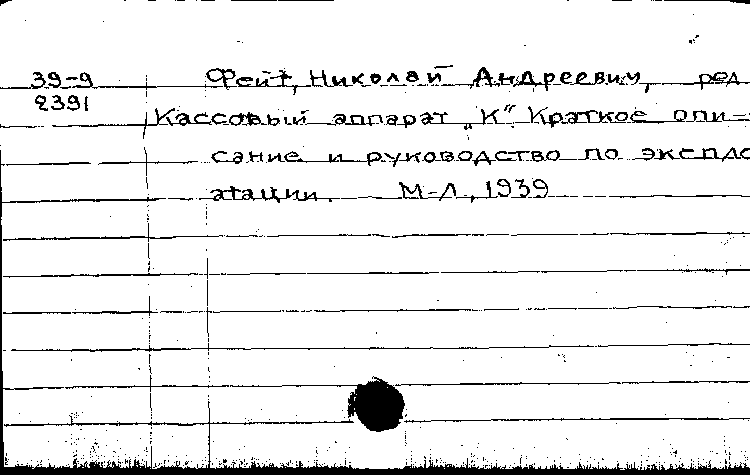 39-9 Фейт, Николай Андреевич, ред
2391
Кассовый аппарат „К“. Краткое опи=
сание и руководство по экспло
атации. М-Л., 1939